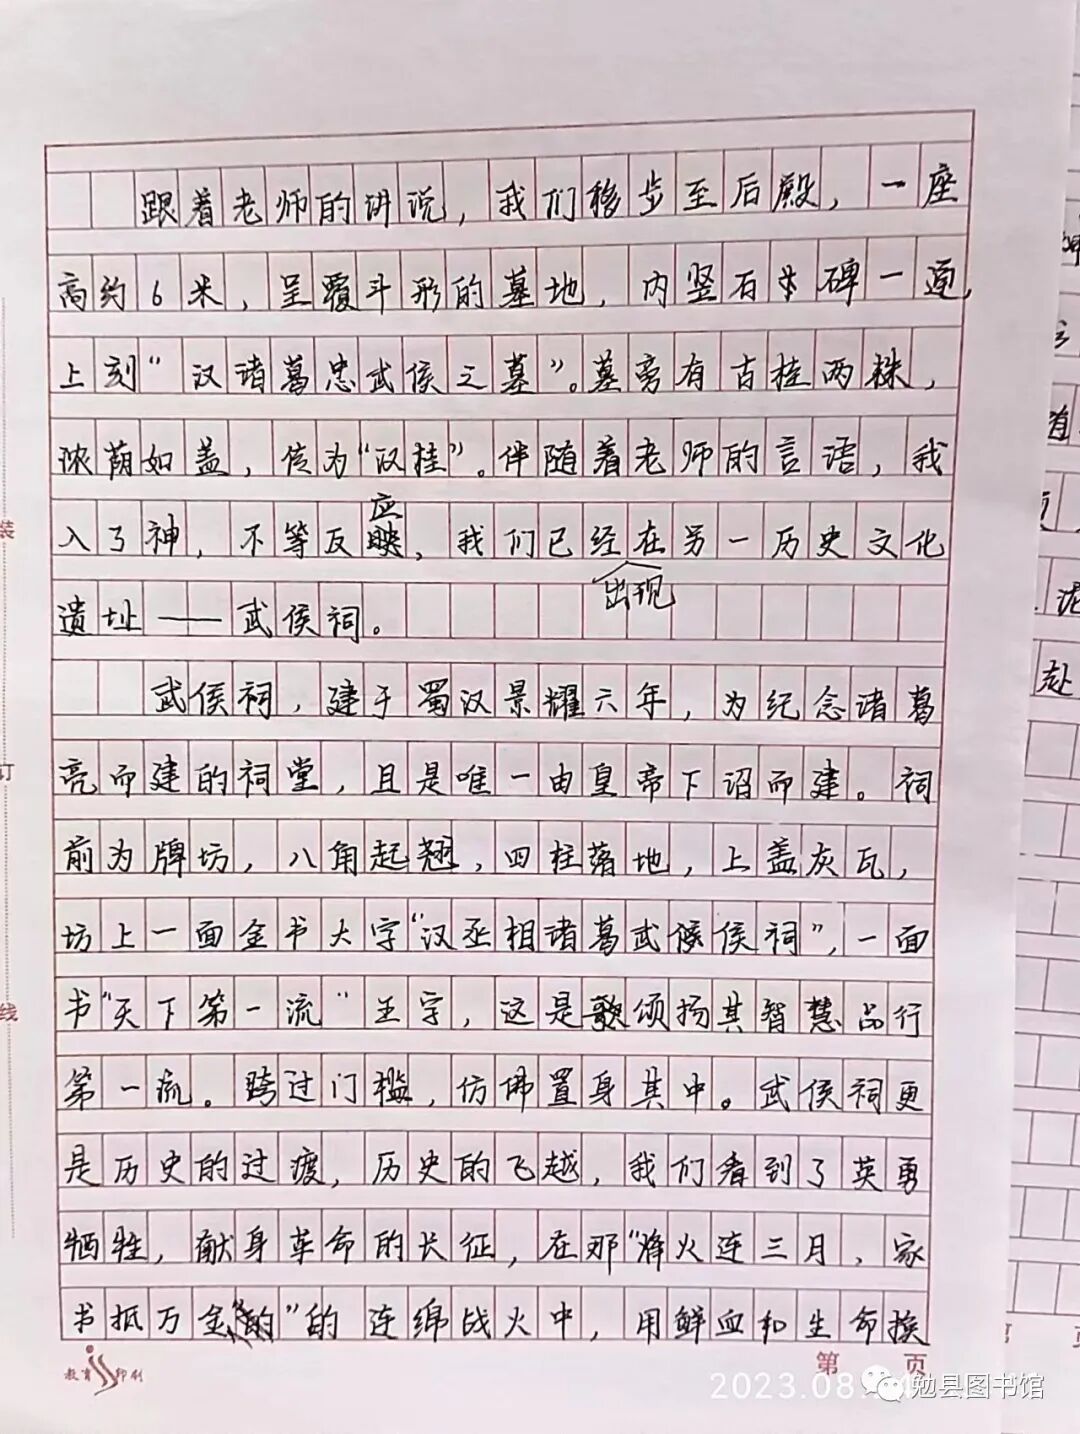 跟着老师的讲说，我们移步至后殿，一座
高约6米，呈覆斗形的墓地，内竖石碑一通，
上刻“汉诸葛忠武侯之墓”。墓旁有古桂两株，
浓荫如盖，传为“汉桂”。伴随着老师的言语，我
应
入了神，不等反映，我们已经在另一历史文化
出现
遗址——武侯祠。
武侯祠，建于蜀汉景耀六年，为纪念诸葛
亮而建的祠堂，且是唯一由皇帝下诏而建。祠
前为牌坊，八角起翘，四柱落地，上盖灰瓦，
坊上一面金书大字“汉丞相诸葛武侯祠”，一面
书“天下第一流”王字，这是歌颂扬其智慧品行
第一流。跨过门槛，仿佛置身其中。武侯祠更
是历史的过渡，历史的飞越，我们看到了英勇
牺牲，献身革命的长征，在那“烽火连三月，家
书抵万金”的连绵战火中，用鲜血和生命换
装
订
线
教育印刷
第 页
2023.08
勉县图书馆